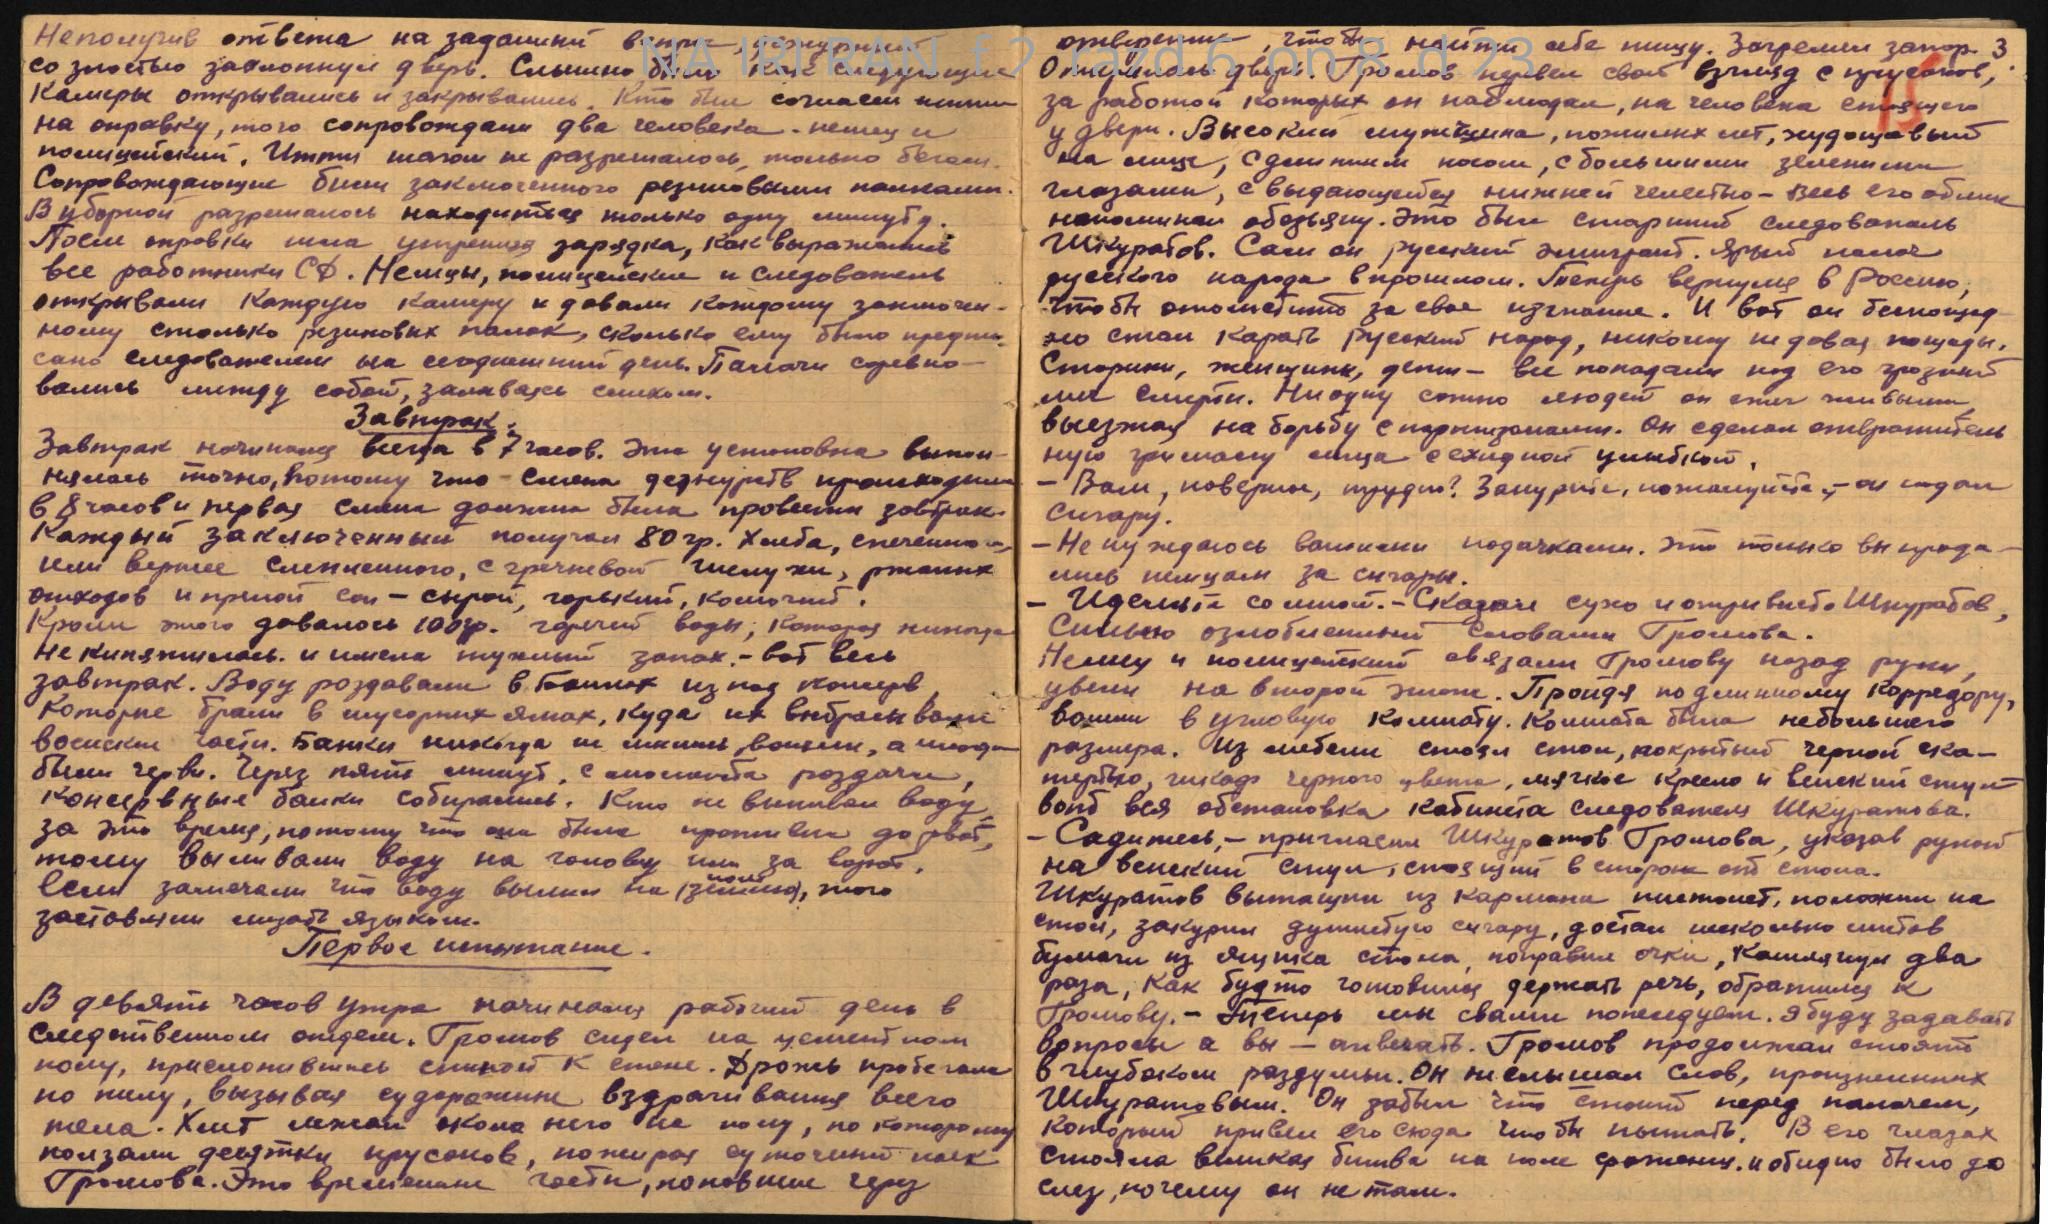 Неполучив ответа на заданный вопрос,
со злостью захлопнул дверь. Слышно было как следующие
камеры открывались и закрывались. Кто был согласен итти
на оправку, того сопровождали два человека - немец и
полицейский. Итти шагом не разрешалось, только бегом.
Сопровождающие били заключенного резиновыми палками.
В уборной разрешалось находиться только одну минуту.
После оправки шла утренняя зарядка, как выражались
все работники СД. Немцы, полицейские и следователь
открывали каждую камеру и давали каждому заключен-
ному столько резиновых палок, сколько ему было предпи-
сано следователем на сегодняшний день. Палачи соревно-
вались между собой, заливаясь смехом.
Завтрак.
Завтрак начинался всегда в 7 часов. Эта установка выпол-
нялась точно, потому что смена дежурств происходила
в 8 часов и первая смена должна была провести завтрак.
Каждый заключенный получал 80 гр. хлеба, спеченного,
или вернее слепленного, с гречневой шелухи, ржаных
отходов и прелой сои - сырой, горький, колючий.
Кроме этого давалось 100 гр. горячей воды, которая никогда
не кипятилась и имела тухлый запах - вот весь
завтрак. Воду раздавали в банках из под консерв,
которые брали в мусорных ямах, куда их выбрасывали
воинские части. Банки никогда не мылись, воняли, а иногда
были черви. Через пять минут, с момента раздачи,
консервные банки собирались. Кто не выпивал воду
за это время, потому что она была противна до рвот,
тому выливали воду на голову или за ворот.
Если замечали что воду вылил на (землю) пол, того
заставляли лизать языком.
Первое испытание.
В девять часов утра начинался рабочий день в
следственном отделе. Громов сидел на цементном
полу, прислонившись спиной к стене. Дрожь пробегала
по телу, вызывая судорожные вздрагивания всего
тела. Хлеб лежал около него на полу, по которому
ползали десятки прусаков, пожирая суточный паёк
Громова. Это временные гости, попавшие через
NA IRI RAN f 2 razd 6 on 8 d 23
3.
отверстие, чтобы найти себе пищу. Загремел запор.
Открылась дверь. Громов перевел свой взгляд с прусаков,
за работой которых он наблюдал, на человека стоящего
у двери. Высокий мужчина, пожилых лет, худощавый
на лице, с длинным носом, с большими зелеными
глазами, с выдающейся нижней челестью - весь его облик
напоминал обезьяну. Это был старший следователь
Шкуратов. Сам он русский эмигрант. Ярый палач
русского народа в прошлом. Теперь вернулся в Россию,
чтобы отомстить за свое изгнание. И вот он беспощад-
но стал карать русский народ, никому не давая пощады.
Старики, женщины, дети - все попадали под его грозный
меч смерти. Ни одну сотню людей он сжег живыми,
выезжая на борьбу с партизанами. Он сделал отвратитель
ную гримасу лица с ехидной улыбкой.
- Вам, поверьте, трудно? Закурите, пожалуйста, - он подал
сигару.
- Не нуждаюсь вашими подачками. Это только вы прода-
лись немцам за сигары.
- Идемьте со мной. - Сказал сухо и отрывисто Шкуратов,
сильно озлобленный словами Громова.
Немец и полицейский связали Громову назад руки,
увели на второй этаж. Пройдя по длинному корредору,
вошли в угловую комнату. Комната была небольшего
размера. Из мебели стоял стол, покрытый черной ска-
тертью, шкаф черного цвета, мягкое кресло и венский стул
вотб вся обстановка кабинета следователя Шкуратова.
- Садитесь, - пригласил Шкуратов Громова, указав рукой
на венский стул, стоящий в стороне от стола.
Шкуратов вытащил из кармана пистолет, положил на
стол, закурил душистую сигару, достал несколько листов
бумаги из ящика стола, поправил очки, кашлянул два
раза, как будто готовился держать речь, обратился к
Громову. - Теперь мы свами потолкуем. Я буду задавать
вопросы а вы - отвечать. Громов продолжал стоять
в глубоком раздумьи. Он не слышал слов, произнесенных
Шкуратовым. Он забыл что стоит перед палачем,
который привел его сюда чтобы пытать. В его глазах
стояла великая битва на поле сражения. и обидно было до
слез, почему он не там.